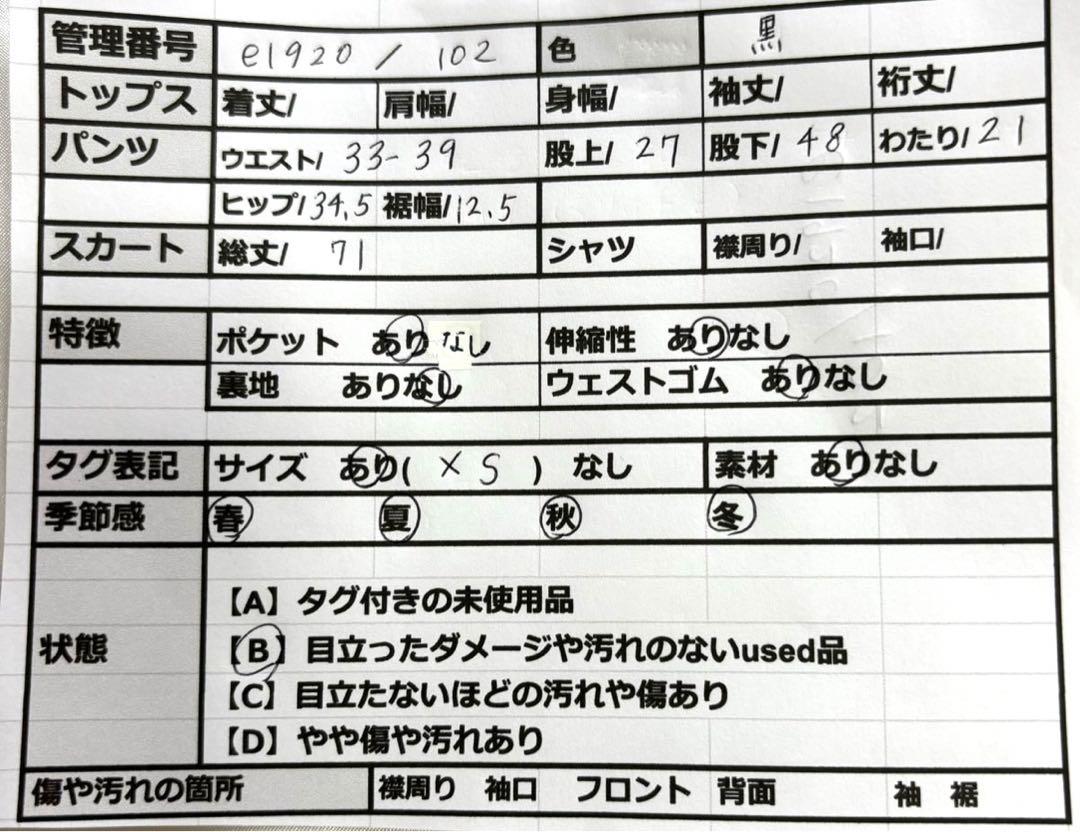 管理番号 e1920 / 102 色 黒
トップス 着丈/ 肩幅/ 身幅/ 袖丈/ 裄丈/
パンツ ウエスト/ 33-39 股上/ 27 股下/ 48 わたり/ 21
ヒップ/34.5 裾幅/12.5
スカート 総丈/ 71 シャツ 襟周り/ 袖口/
特徴 ポケット ありなし 伸縮性 ありなし
裏地 ありなし ウェストゴム ありなし
タグ表記 サイズ あり( XS ) なし 素材 ありなし
季節感 春 夏 秋 冬
【A】タグ付きの未使用品
状態 【B】目立ったダメージや汚れのないused品
【C】目立たないほどの汚れや傷あり
【D】やや傷や汚れあり
傷や汚れの箇所 襟周り 袖口 フロント 背面 袖 裾